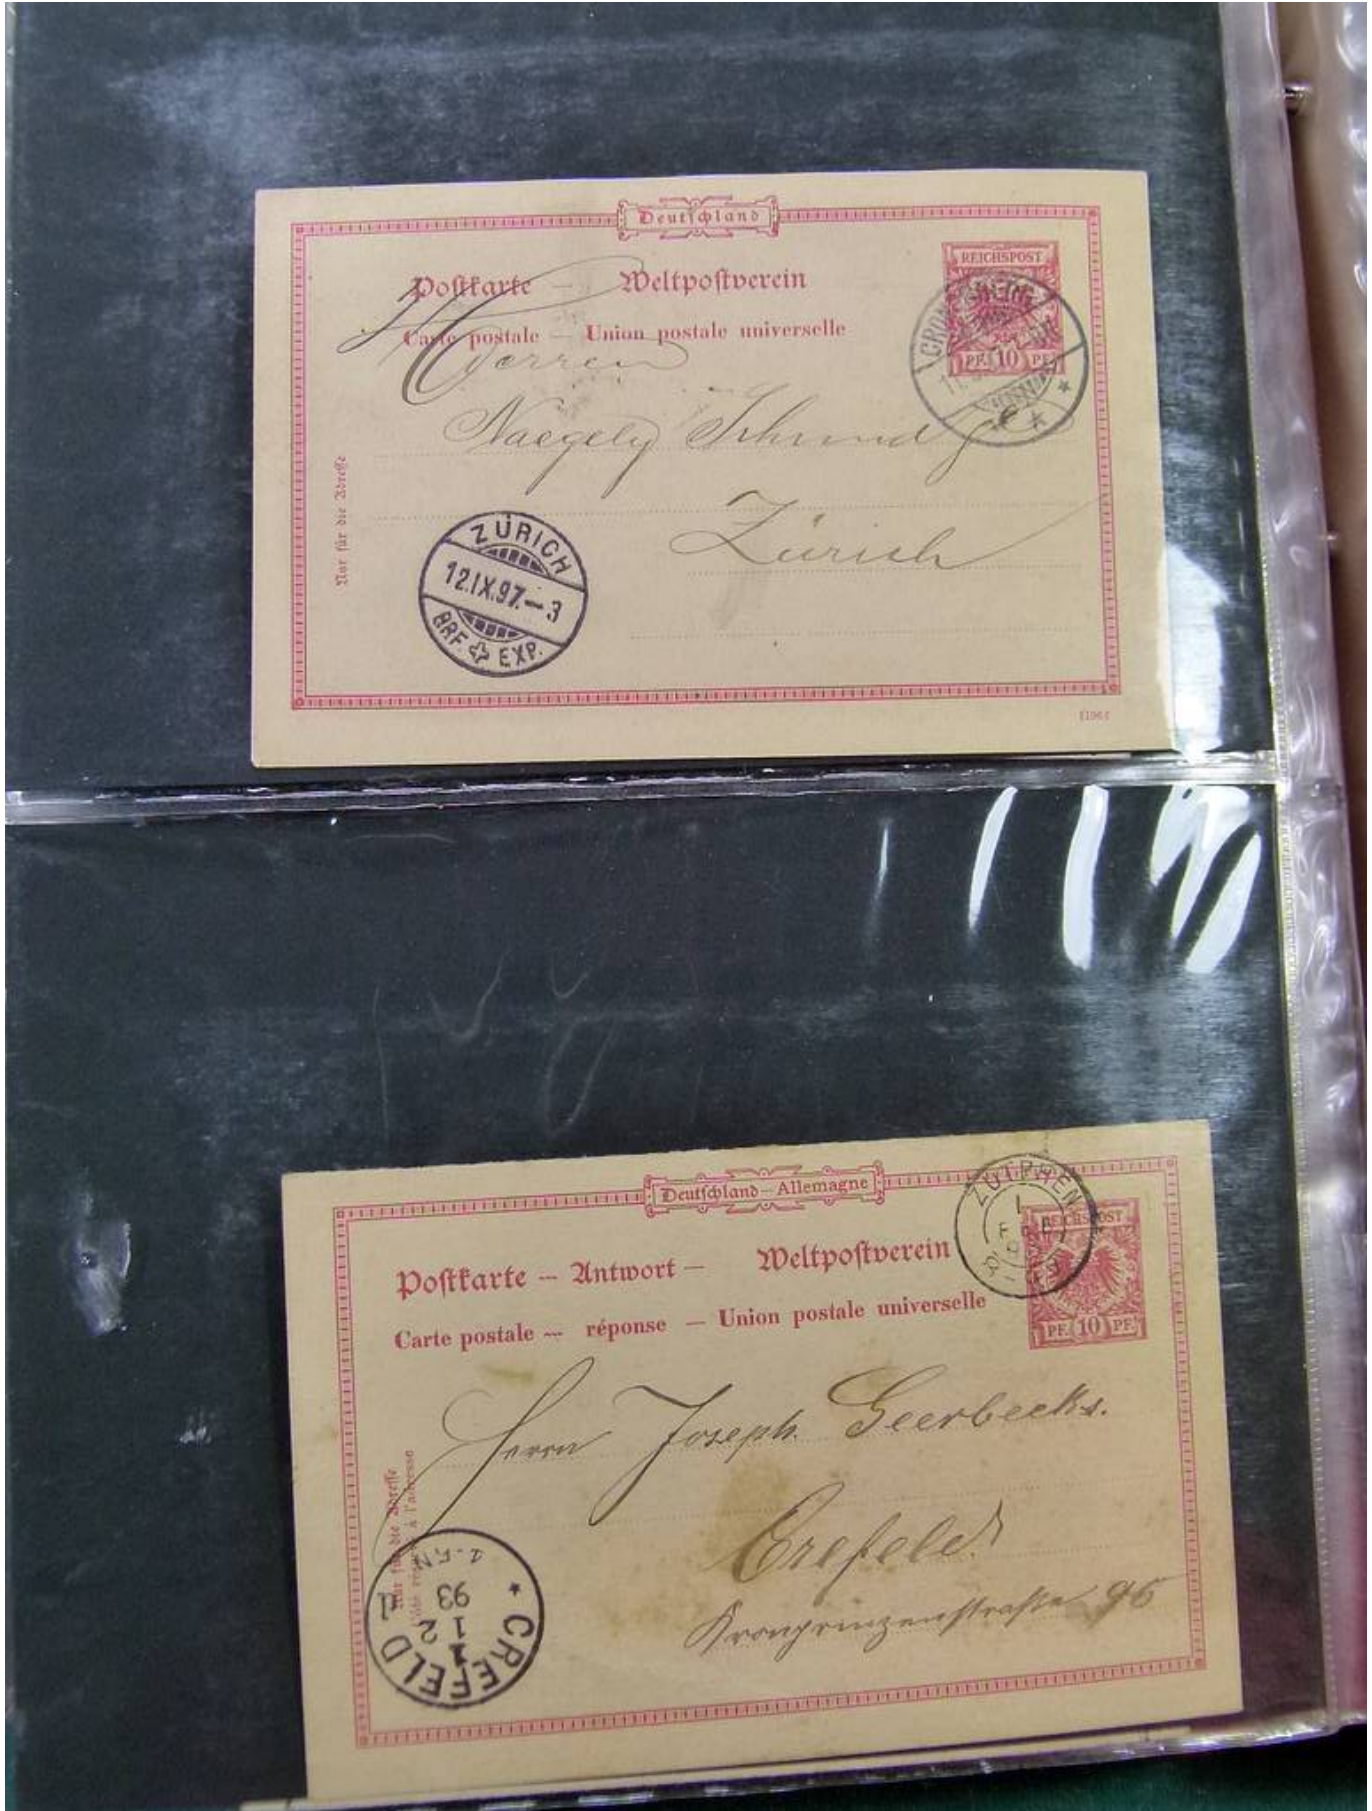 Deutschland
REICHSPOST
Postkarte — Weltpostverein
Carte postale — Union postale universelle
PF. 10 PF.
Herren
Naegely Schmid
Zürich
Nur für die Adresse
ZÜRICH
12.IX.97.–3
BRF. EXP.
Deutschland – Allemagne
ZUTPHEN
1
REICHSPOST
Postkarte — Antwort — Weltpostverein
Carte postale — réponse — Union postale universelle
PF. 10 PF.
Herrn Joseph Geerbecks.
Crefeld
Kronprinzenstraße 96
Nur für die Adresse
à l'adresse
* CREFELD
1
1 2
93